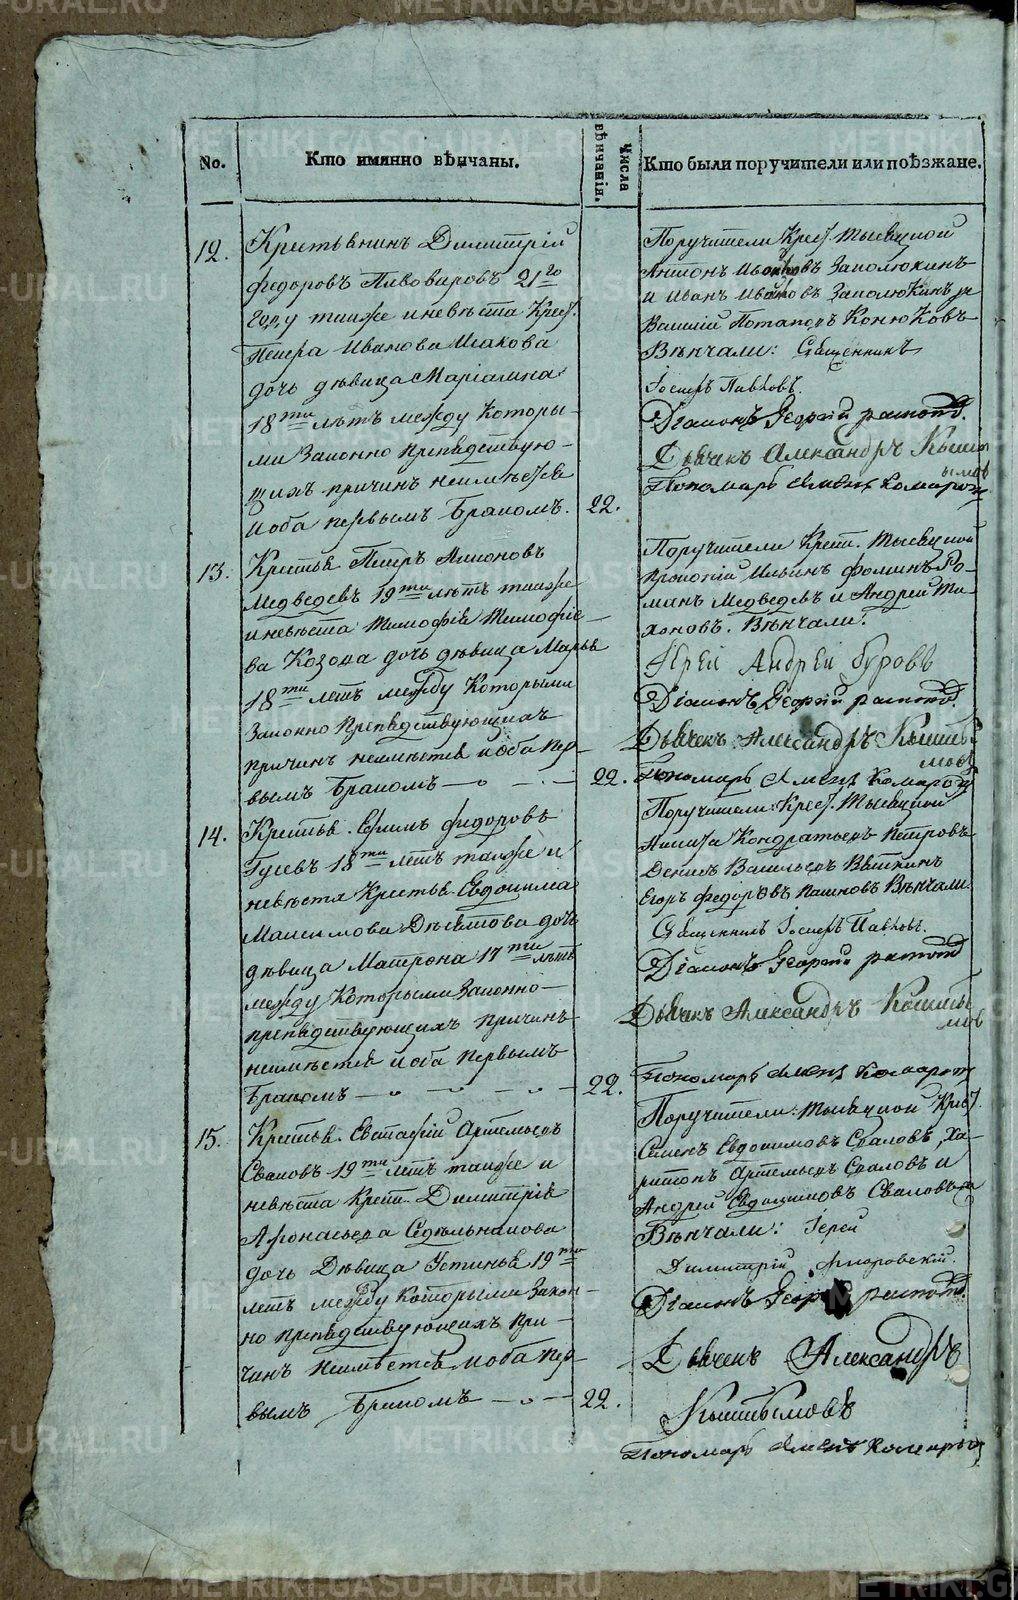 No.
Кто имянно вѣнчаны.
Числа вѣнчанія.
Кто были поручители или поѣзжане.
12.
Крестьянинъ Димитрій
Федоровъ Пивоваровъ 21го
году также и невѣста Крест.
Петра Иванова Исакова
дочь дѣвица Маріамна
18ти лѣтъ между Которы-
ми Законно препядствую-
щихъ причинъ неимѣется
и оба первымъ Бракомъ.
22.
Поручители Крест.
Антонъ Ивановъ
и Иванъ Ивановъ
Василій Потаповъ Конюховъ
Вѣнчали: Священникъ
Іосифъ Павловъ.
Діаконъ Георгій
Дьячекъ Александръ
Пономарь
13.
Крестья. Петръ
Медведевъ 19ти лѣтъ также
и невѣста Тимофѣя Тимофѣе-
ва Козона дочь дѣвица Марья
18ти летъ между Которыми
Законно Препядствующихъ
причинъ неимѣется и оба пер-
вымъ Бракомъ
22.
Поручители Крест.
Прокопій Ильинъ Фоминъ Ро-
манъ Медведевъ и Андрей Ти-
хоновъ. Вѣнчали:
Іерей Андрей Буровъ
Діаконъ Георгій
Дьячекъ Александръ Кышты-
мовъ
Пономарь
14.
Крестья. Ефимъ Федоровъ
Гусевъ 18ти летъ также и
невѣста Крестья. Евдокима
Максимова Дѣсятова дочь
дѣвица Матрона 17ти лѣтъ
между Которыми Законно
препядствующихъ причинъ
неимѣется и оба первымъ
Бракомъ
22.
Поручители: Крест.
Никита Кондратьевъ Петровъ
Денисъ Васильевъ Вяткинъ
Егоръ Федоровъ Пашновъ Вѣнчали
Священникъ Іосифъ Павловъ.
Діаконъ Георгій
Дьячекъ Александръ Кышты-
мовъ
Пономарь
15.
Крестья. Евстафій Артемьевъ
Сваловъ 19ти летъ также и
невѣста Крест. Димитрія
Афонасьева Седѣльникова
дочь Дѣвица Устинья 19ти
летъ между Которыми Закон-
но препядствующихъ при-
чинъ Неимѣется и оба пер-
вымъ Бракомъ
22.
Поручители: Крест.
Семенъ Евдокимовъ Сваловъ, Ха-
ритонъ Артемьевъ Сваловъ и
Андрей Евдокимовъ Сваловъ
Вѣнчали: Іерей
Димитрій
Діаконъ Георгій
Дьячекъ Александръ
Кыштымовъ
Пономарь
METRIKI.GASO-URAL.RU